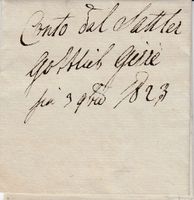 Conto dal Sattler
Gottlieb Girré
fin 3 9bre 1823